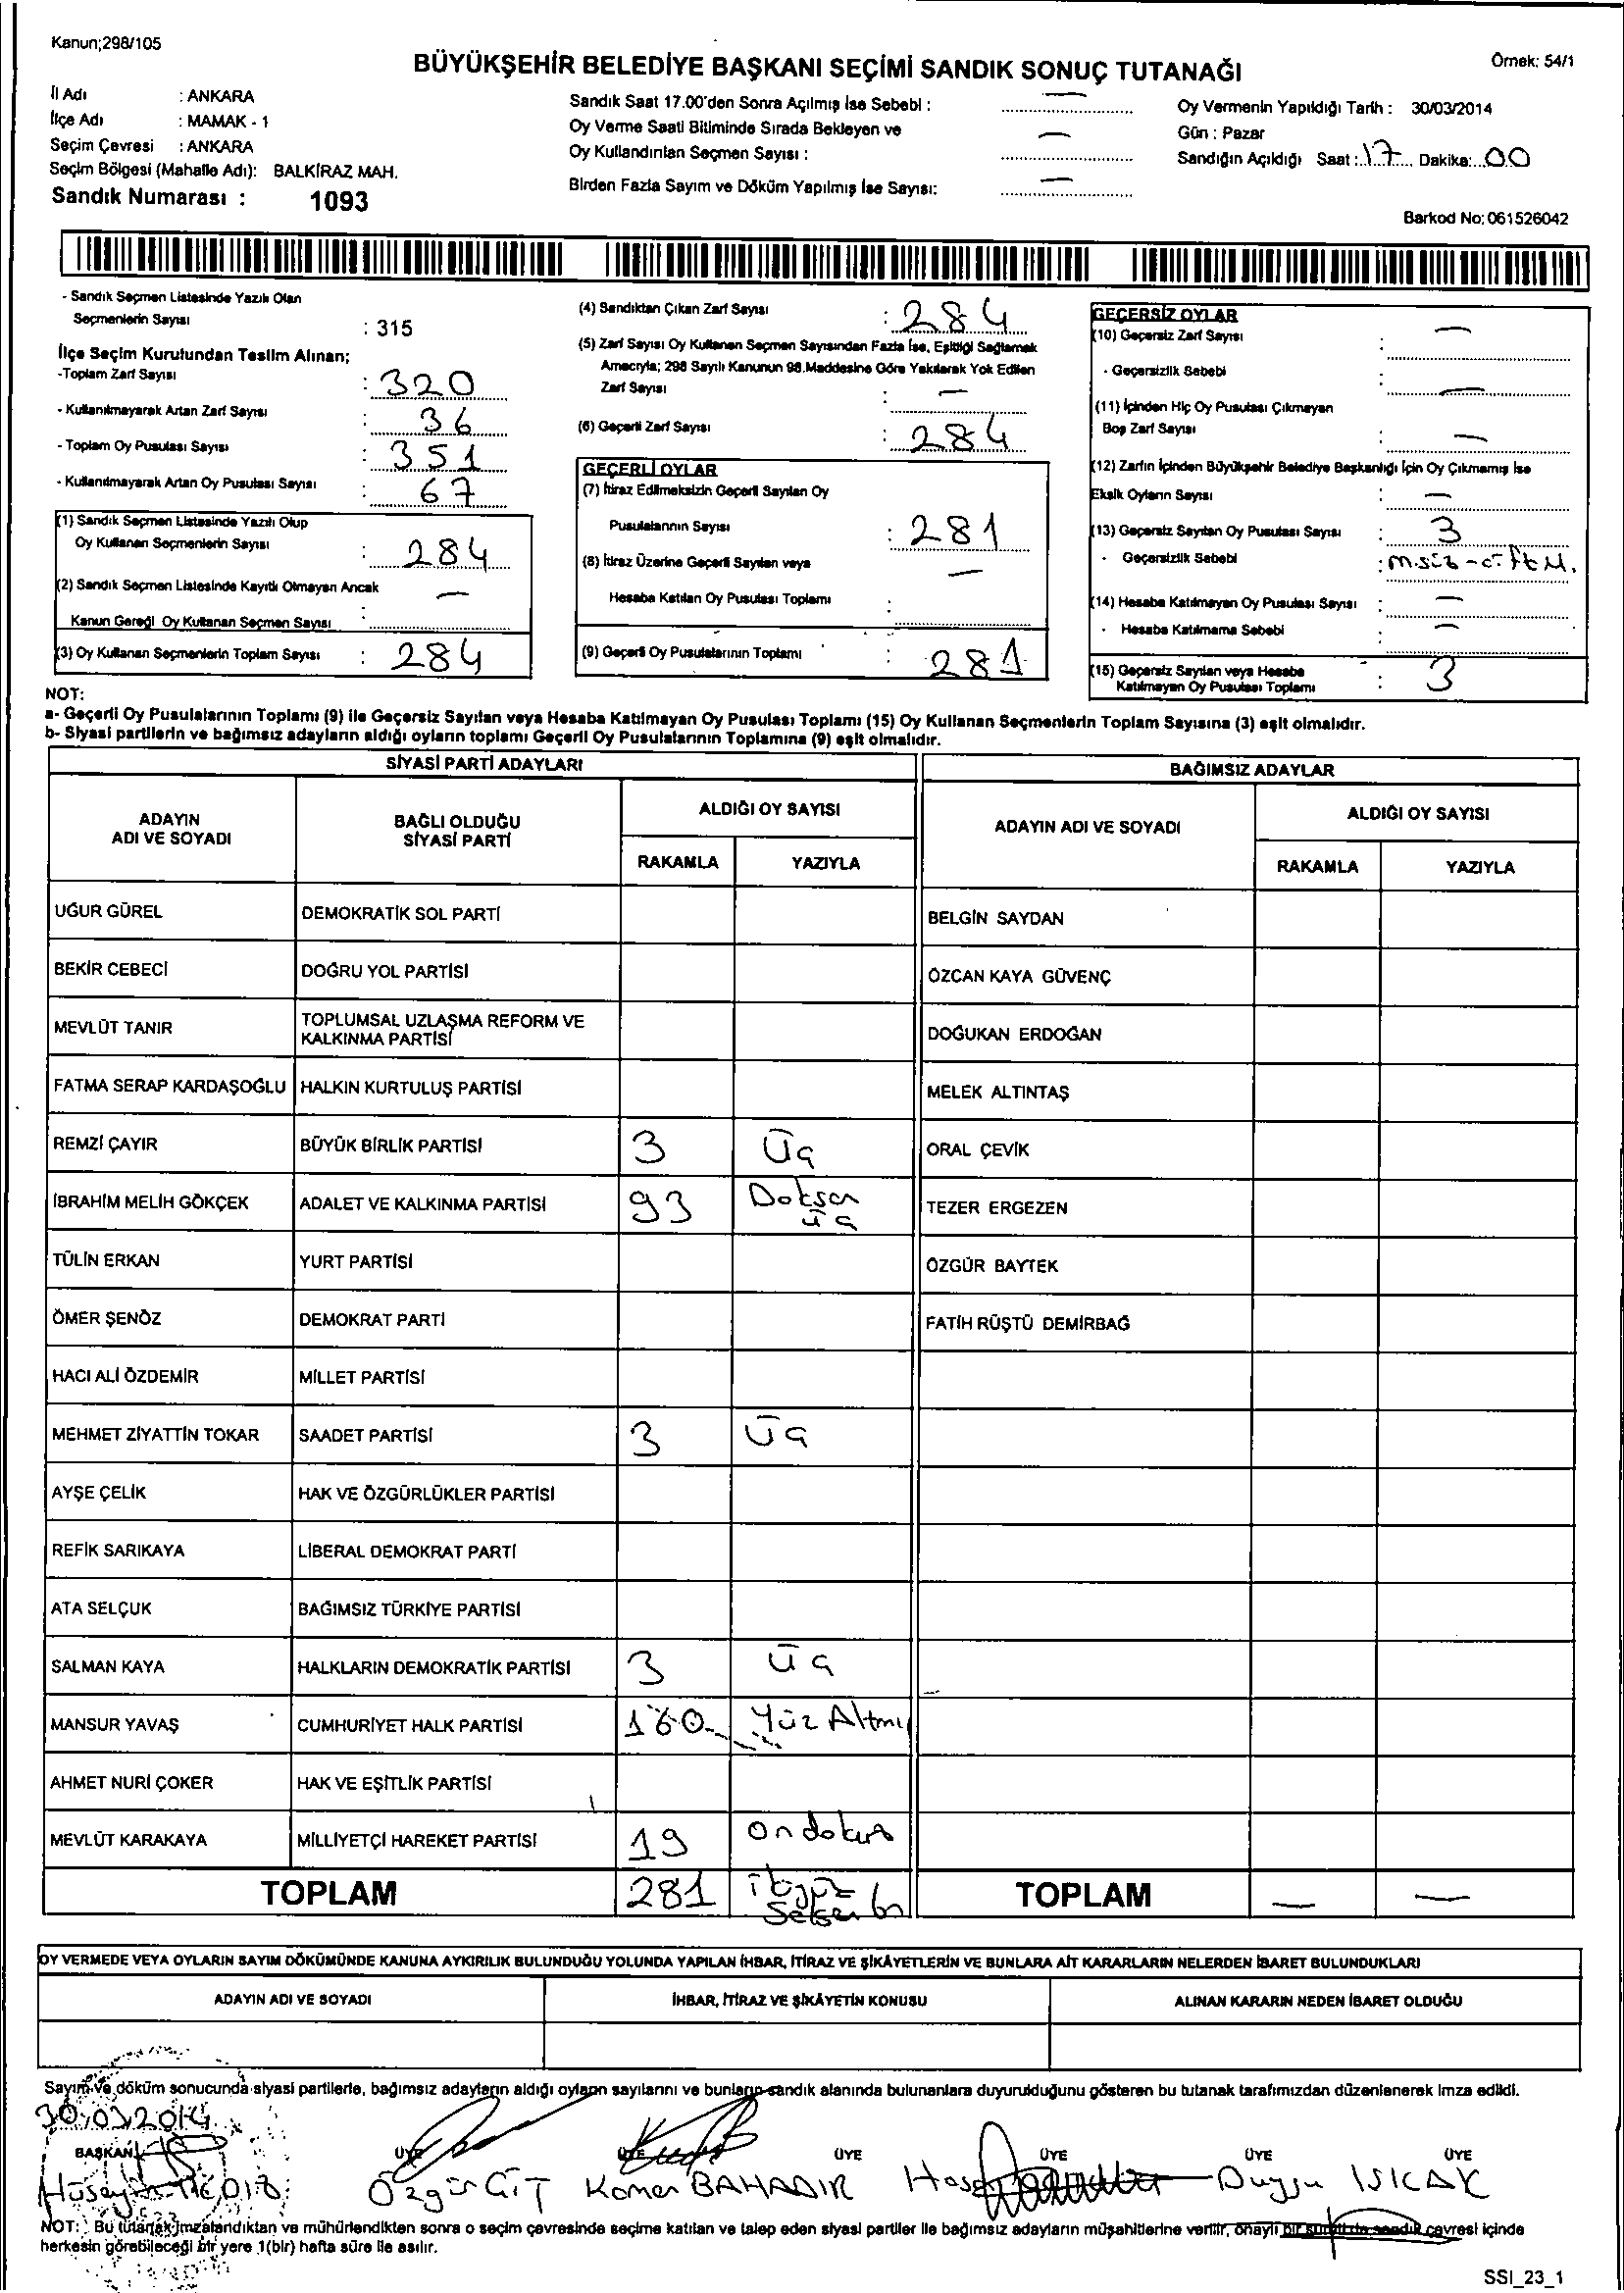 Kanun;298/105
BÜYÜKŞEHİR BELEDİYE BAŞKANI SEÇİMİ SANDIK SONUÇ TUTANAĞI
Örnek: 54/1
İl Adı : ANKARA
İlçe Adı : MAMAK - 1
Seçim Çevresi : ANKARA
Seçim Bölgesi (Mahalle Adı): BALKİRAZ MAH.
Sandık Numarası : 1093
Sandık Saat 17.00'den Sonra Açılmış İse Sebebi : —
Oy Verme Saati Bitiminde Sırada Bekleyen ve
Oy Kullandırılan Seçmen Sayısı : —
Birden Fazla Sayım ve Döküm Yapılmış İse Sayısı: —
Oy Vermenin Yapıldığı Tarih : 30/03/2014
Gün : Pazar
Sandığın Açıldığı Saat : 17 Dakika: 00
Barkod No: 061526042
- Sandık Seçmen Listesinde Yazılı Olan
Seçmenlerin Sayısı : 315
İlçe Seçim Kurulundan Teslim Alınan;
-Toplam Zarf Sayısı : 320
- Kullanılmayarak Artan Zarf Sayısı : 36
- Toplam Oy Pusulası Sayısı : 351
- Kullanılmayarak Artan Oy Pusulası Sayısı : 67
(1) Sandık Seçmen Listesinde Yazılı Olup
Oy Kullanan Seçmenlerin Sayısı : 284
(2) Sandık Seçmen Listesinde Kayıtlı Olmayan Ancak
Kanun Gereği Oy Kullanan Seçmen Sayısı : —
(3) Oy Kullanan Seçmenlerin Toplam Sayısı : 284
(4) Sandıktan Çıkan Zarf Sayısı : 284
(5) Zarf Sayısı Oy Kullanan Seçmen Sayısından Fazla İse, Eşitliği Sağlamak
Amacıyla; 298 Sayılı Kanunun 98.Maddesine Göre Yakılarak Yok Edilen
Zarf Sayısı : —
(6) Geçerli Zarf Sayısı : 284
GEÇERLİ OYLAR
(7) İtiraz Edilmeksizin Geçerli Sayılan Oy
Pusulalarının Sayısı : 281
(8) İtiraz Üzerine Geçerli Sayılan veya
Hesaba Katılan Oy Pusulası Toplamı : —
(9) Geçerli Oy Pusulalarının Toplamı : 281
GEÇERSİZ OYLAR
(10) Geçersiz Zarf Sayısı : —
- Geçersizlik Sebebi : —
(11) İçinden Hiç Oy Pusulası Çıkmayan
Boş Zarf Sayısı : —
(12) Zarfın İçinden Büyükşehir Belediye Başkanlığı İçin Oy Çıkmamış İse
Eksik Oyların Sayısı : —
(13) Geçersiz Sayılan Oy Pusulası Sayısı : 3
- Geçersizlik Sebebi :
(14) Hesaba Katılmayan Oy Pusulası Sayısı : —
- Hesaba Katılmama Sebebi : —
(15) Geçersiz Sayılan veya Hesaba
Katılmayan Oy Pusulası Toplamı : 3
NOT:
a- Geçerli Oy Pusulalarının Toplamı (9) ile Geçersiz Sayılan veya Hesaba Katılmayan Oy Pusulası Toplamı (15) Oy Kullanan Seçmenlerin Toplam Sayısına (3) eşit olmalıdır.
b- Siyasi partilerin ve bağımsız adayların aldığı oyların toplamı Geçerli Oy Pusulalarının Toplamına (9) eşit olmalıdır.
SİYASİ PARTİ ADAYLARI
ADAYIN ADI VE SOYADI BAĞLI OLDUĞU SİYASİ PARTİ ALDIĞI OY SAYISI
RAKAMLA YAZIYLA
UĞUR GÜREL DEMOKRATİK SOL PARTİ
BEKİR CEBECİ DOĞRU YOL PARTİSİ
MEVLÜT TANIR TOPLUMSAL UZLAŞMA REFORM VE KALKINMA PARTİSİ
FATMA SERAP KARDAŞOĞLU HALKIN KURTULUŞ PARTİSİ
REMZİ ÇAYIR BÜYÜK BİRLİK PARTİSİ 3 Üç
İBRAHİM MELİH GÖKÇEK ADALET VE KALKINMA PARTİSİ 93 Doksan üç
TÜLİN ERKAN YURT PARTİSİ
ÖMER ŞENÖZ DEMOKRAT PARTİ
HACI ALİ ÖZDEMİR MİLLET PARTİSİ
MEHMET ZİYATTİN TOKAR SAADET PARTİSİ 3 Üç
AYŞE ÇELİK HAK VE ÖZGÜRLÜKLER PARTİSİ
REFİK SARIKAYA LİBERAL DEMOKRAT PARTİ
ATA SELÇUK BAĞIMSIZ TÜRKİYE PARTİSİ
SALMAN KAYA HALKLARIN DEMOKRATİK PARTİSİ 3 Üç
MANSUR YAVAŞ CUMHURİYET HALK PARTİSİ 160 Yüz Altmı
AHMET NURİ ÇOKER HAK VE EŞİTLİK PARTİSİ
MEVLÜT KARAKAYA MİLLİYETÇİ HAREKET PARTİSİ 19 Ondokuz
TOPLAM 281 ikiyüz Seksen bir
BAĞIMSIZ ADAYLAR
ADAYIN ADI VE SOYADI ALDIĞI OY SAYISI
RAKAMLA YAZIYLA
BELGİN SAYDAN
ÖZCAN KAYA GÜVENÇ
DOĞUKAN ERDOĞAN
MELEK ALTINTAŞ
ORAL ÇEVİK
TEZER ERGEZEN
ÖZGÜR BAYTEK
FATİH RÜŞTÜ DEMİRBAĞ
TOPLAM — —
OY VERMEDE VEYA OYLARIN SAYIM DÖKÜMÜNDE KANUNA AYKIRILIK BULUNDUĞU YOLUNDA YAPILAN İHBAR, İTİRAZ VE ŞİKÂYETLERİN VE BUNLARA AİT KARARLARIN NELERDEN İBARET BULUNDUKLARI
ADAYIN ADI VE SOYADI İHBAR, İTİRAZ VE ŞİKÂYETİN KONUSU ALINAN KARARIN NEDEN İBARET OLDUĞU
Sayım ve döküm sonucunda siyasi partilerle, bağımsız adayların aldığı oyların sayılarını ve bunların sandık alanında bulunanlara duyurulduğunu gösteren bu tutanak tarafımızdan düzenlenerek imza edildi.
30/03/2014
BAŞKAN ÜYE ÜYE ÜYE ÜYE ÜYE ÜYE
Hüseyin Özgür GİT Kamer BAHADIR Hasan Duygu IŞICAK
NOT: Bu tutanak imzalandıktan ve mühürlendikten sonra o seçim çevresinde seçime katılan ve talep eden siyasi partiler ile bağımsız adayların müşahitlerine verilir, onaylı bir sureti de sandık çevresi içinde
herkesin görebileceği bir yere 1(bir) hafta süre ile asılır.
SSI_23_1